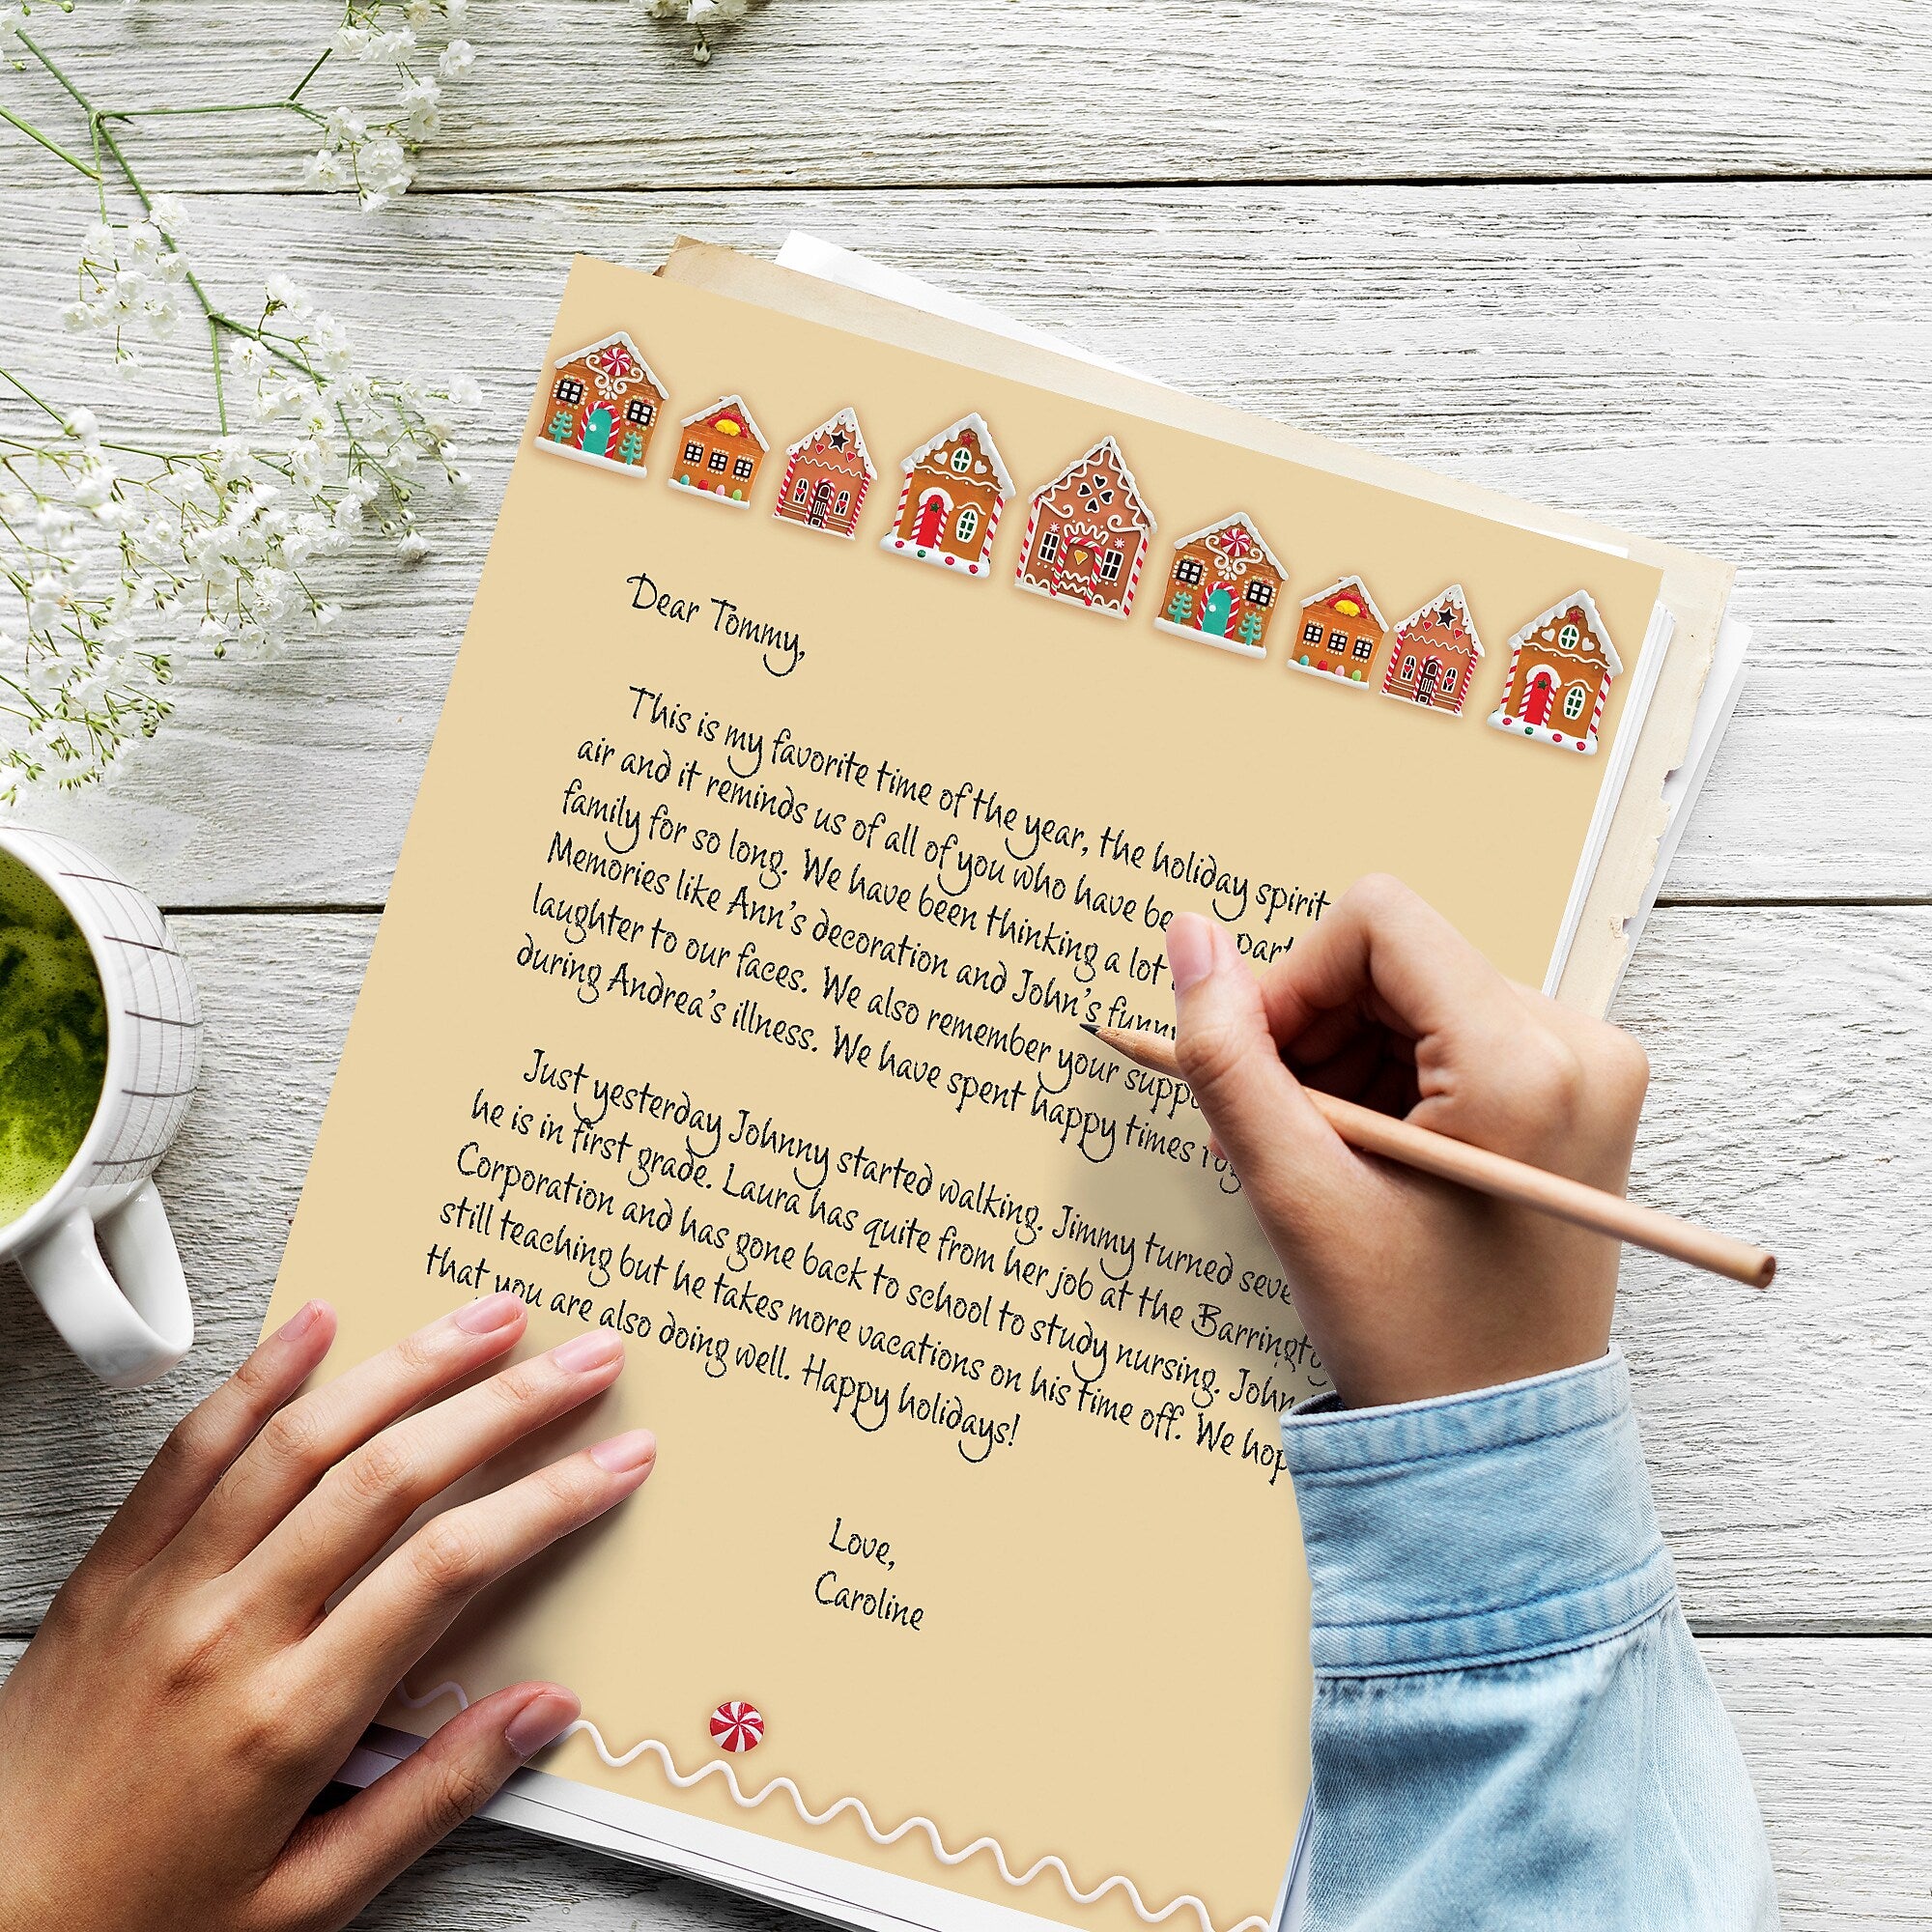 Dear Tommy,
This is my favorite time of the year, the holiday spirit
air and it reminds us of all of you who have
family for so long. We have been thinking a lot
Memories like Ann's decoration and John's
laughter to our faces. We also remember your
during Andrea's illness. We have spent happy times
Just yesterday Johnny started walking. Jimmy turned
he is in first grade. Laura has quite from her job at the
Corporation and has gone back to school to study nursing. John
still teaching but he takes more vacations on his time off. We
that you are also doing well. Happy holidays!
Love,
Caroline